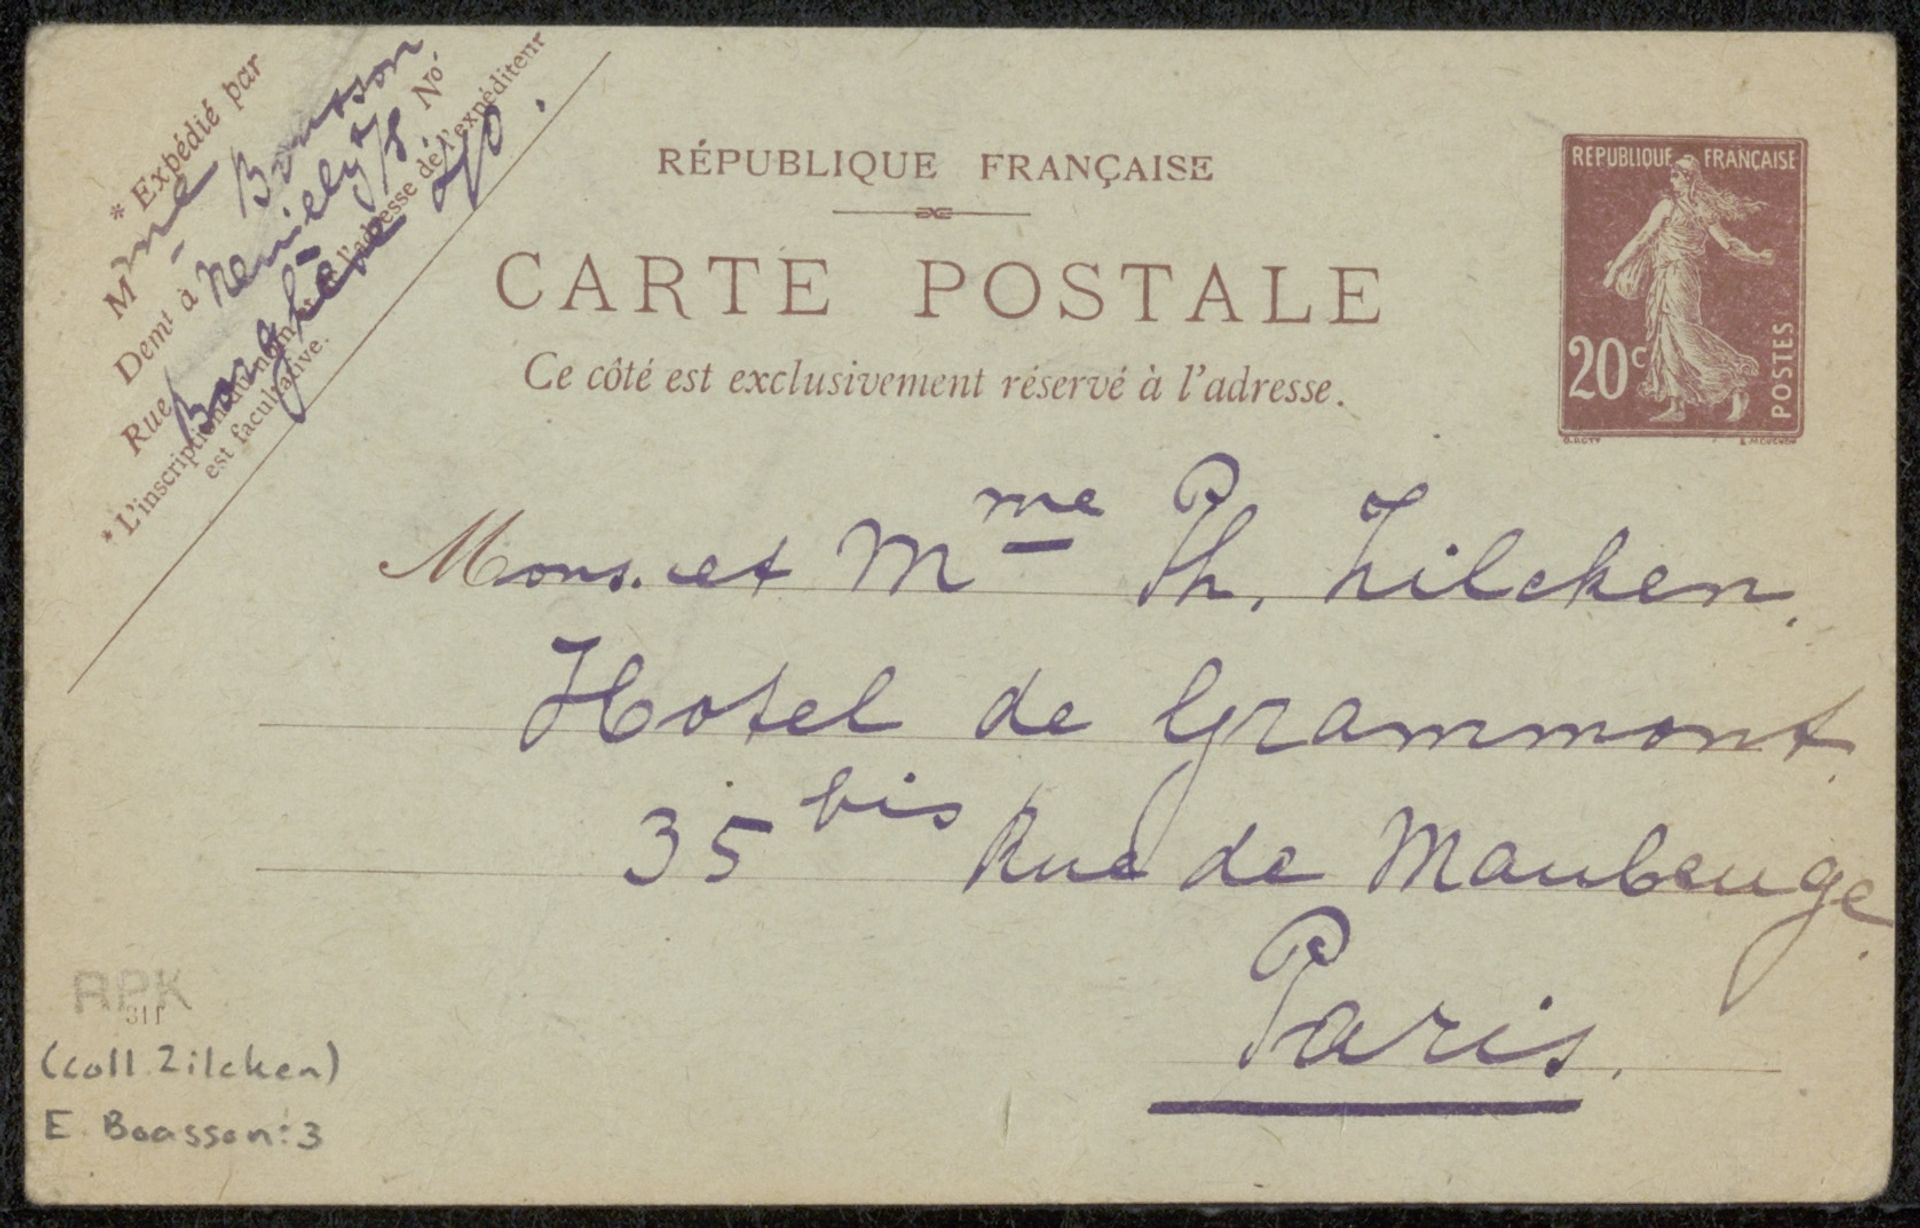 * Expédié par
Mme Boasson
Demt à Neuilly s/s No
Rue
* L'inscription du nom et de l'adresse de l'expéditeur
est facultative.
RÉPUBLIQUE FRANÇAISE
CARTE POSTALE
Ce côté est exclusivement réservé à l'adresse.
REPUBLIQUE FRANÇAISE
20c
POSTES
O. ROTY E. MOUCHON
Mons. et Mme Ph. Zilcken.
Hotel de Grammont
35 bis Rue de Maubeuge
Paris.
RPK
311
(coll. Zilcken)
E. Boasson: 3